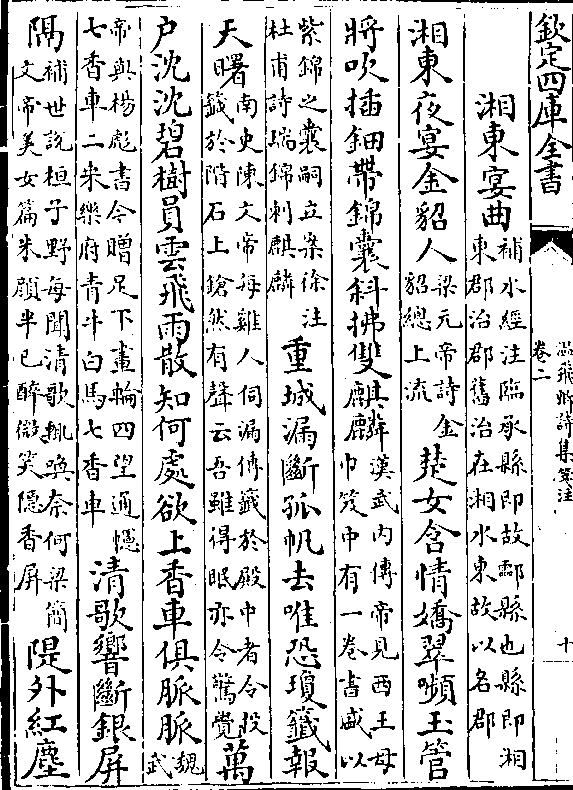 欽定四庫全書
溫飛卿詩集箋注
卷二
十
湘東宴曲
補水經注臨承縣即故酃縣也縣即湘
東郡治郡舊治在湘水東故以名郡
湘東夜宴金貂人
梁元帝詩金
貂總上流
楚女含情嬌翠嚬玉管
將吹插鈿帶錦囊斜拂雙麒麟
漢武内傳帝見西王母
巾笈中有一卷書盛以
紫錦之囊嗣立案徐注
杜甫詩瑞錦刺麒麟
重城漏斷孤帆去唯恐瓊籤報
天曙
南史陳文帝每雞人伺漏傳籤於殿中者令投
籤於階石上鎗然有聲云吾雖得眠亦令驚覺
萬
户沈沈碧樹員雲飛雨散知何處欲上香車俱脈脈
魏
武
帝與楊彪書令贈足下畫輪四望通幰
七香車二乘樂府青牛白馬七香車
清歌響斷銀屏
隔
補世說桓子野每聞清歌輒喚奈何梁簡
文帝美女篇朱顔半已醉微笑隱香屏
隄外紅塵